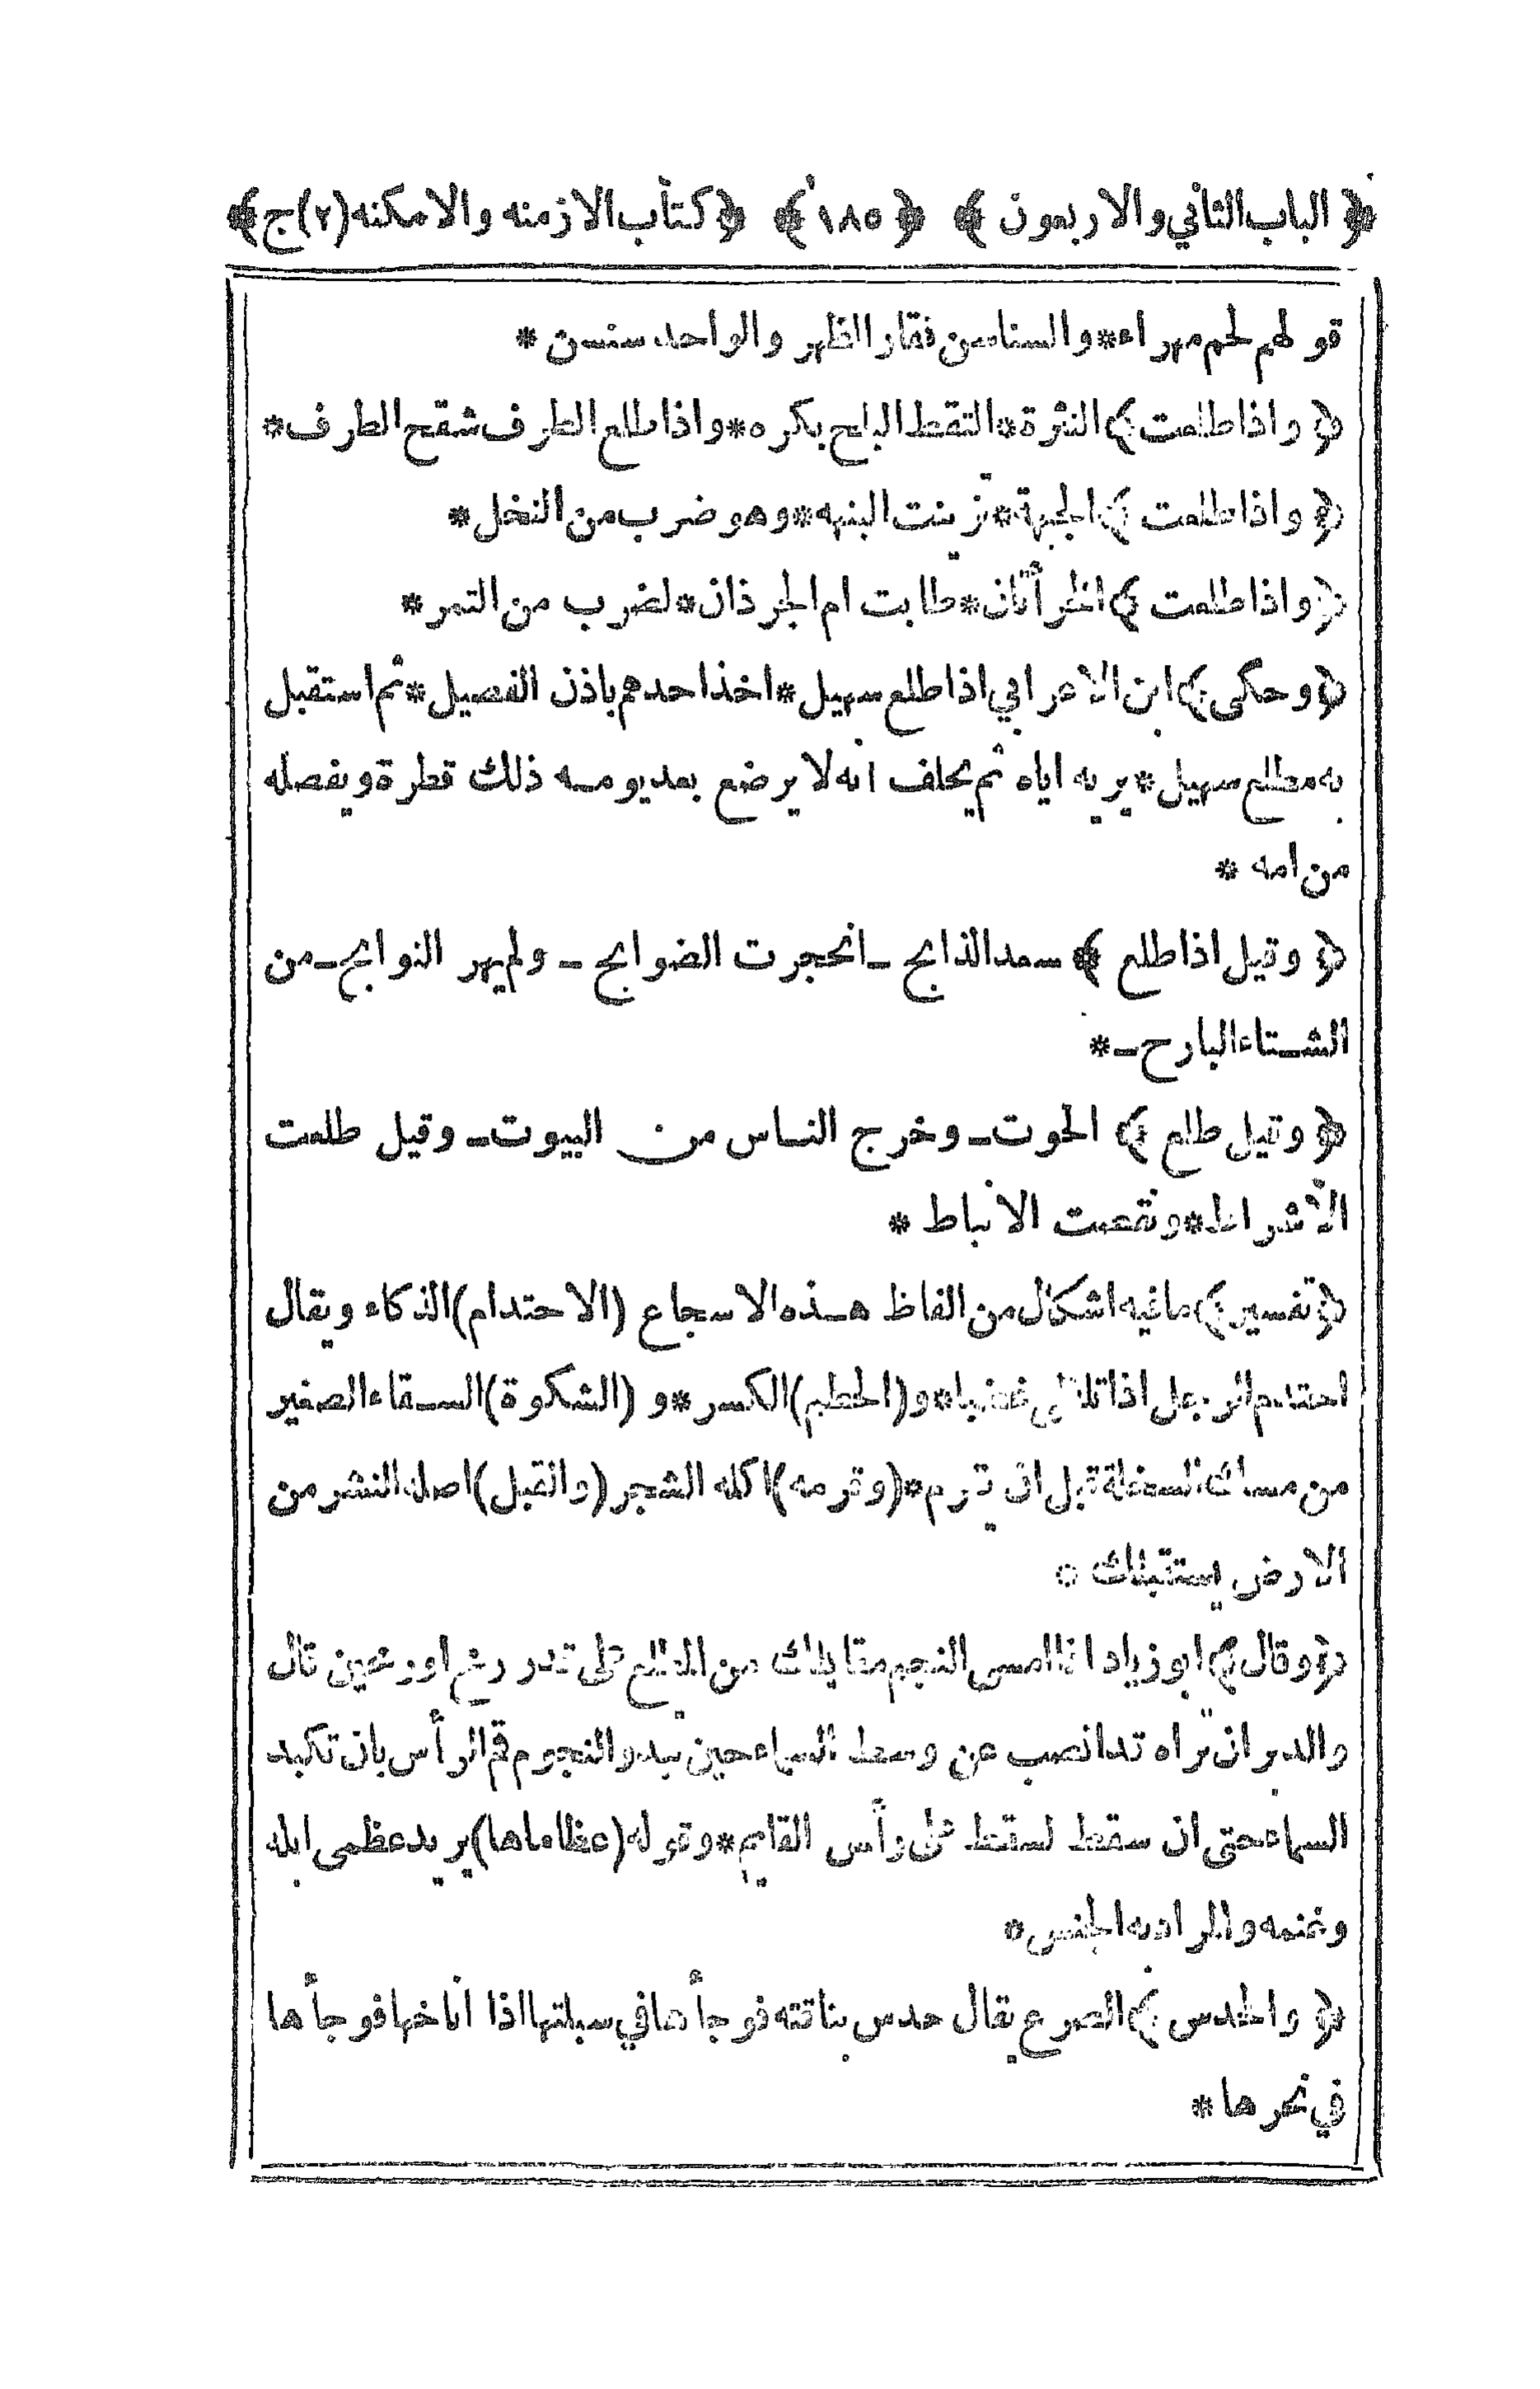 ﴿ الباب الثاني والاربعون ﴾ ﴿ ١٨٥ ﴾ ﴿ كتاب الازمنه والامكنه (٢) ج ﴾
قولهم لحم مهراء * والسناسن فقار الظهر والواحد سنسن *
﴿ واذا طلعت ﴾ النثرة * التقط البلح بكره * واذا طلع الطرف شقح الطرف *
﴿ واذا طلعت ﴾ الجبهة * تزينت البنهه * وهو ضرب من النخل *
﴿ واذا طلعت ﴾ الخرأتان * طابت ام الجرذان * لضرب من التمر *
﴿ وحكى ﴾ ابن الاعرابي اذا طلع سهيل * اخذ احدهم باذن الفصيل * ثم استقبل
به مطلع سهيل * يريه اياه ثم يحلف انه لا يرضع بعد يومه ذلك قطرة ويفصله
من امه *
﴿ وقيل اذا طلع ﴾ سعد الذابح ـ انحجرت الضوابح ـ ولم يهر النوابح ـ من
الشتاء البارح ـ *
﴿ وقيل طلع ﴾ الحوت ـ وخرج الناس من البيوت ـ وقيل طلعت
الأشراط * ونقعت الانباط *
﴿ تفسير ﴾ ما فيه اشكال من الفاظ هذه الاسجاع (الاحتدام) الذكاء ويقال
احتدم الرجل اذا تلظى غضبا * و (الحطم) الكسر * و (الشكوة) السقاء الصغير
من مسك السخلة قبل ان يقرم * (وقرمه) اكله الشجر (والقبل) اصله النشر من
الارض يستقبلك *
﴿ وقال ﴾ ابو زياد اذا امسى النجم مقابلك من المطلع على قدر رمح او رمحين قال
والدبران تراه قد انصب عن وسط السماء حين تبدو النجوم قم الرأس بان تكبد
السماء حتى ان سقط لسقط على رأس القايم * وقوله (عظاماها) يريد عظمى ابله
وغنمه والمراد به الجنس *
﴿ والحدس ﴾ الصرع يقال حدس بناقته فوجأها في سبلتها اذا اناخها فوجأها
في نحرها *